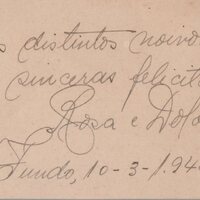 s distintos noivo
sinceras felicit
Rosa e Dolo
Fundo, 10-3-1.94